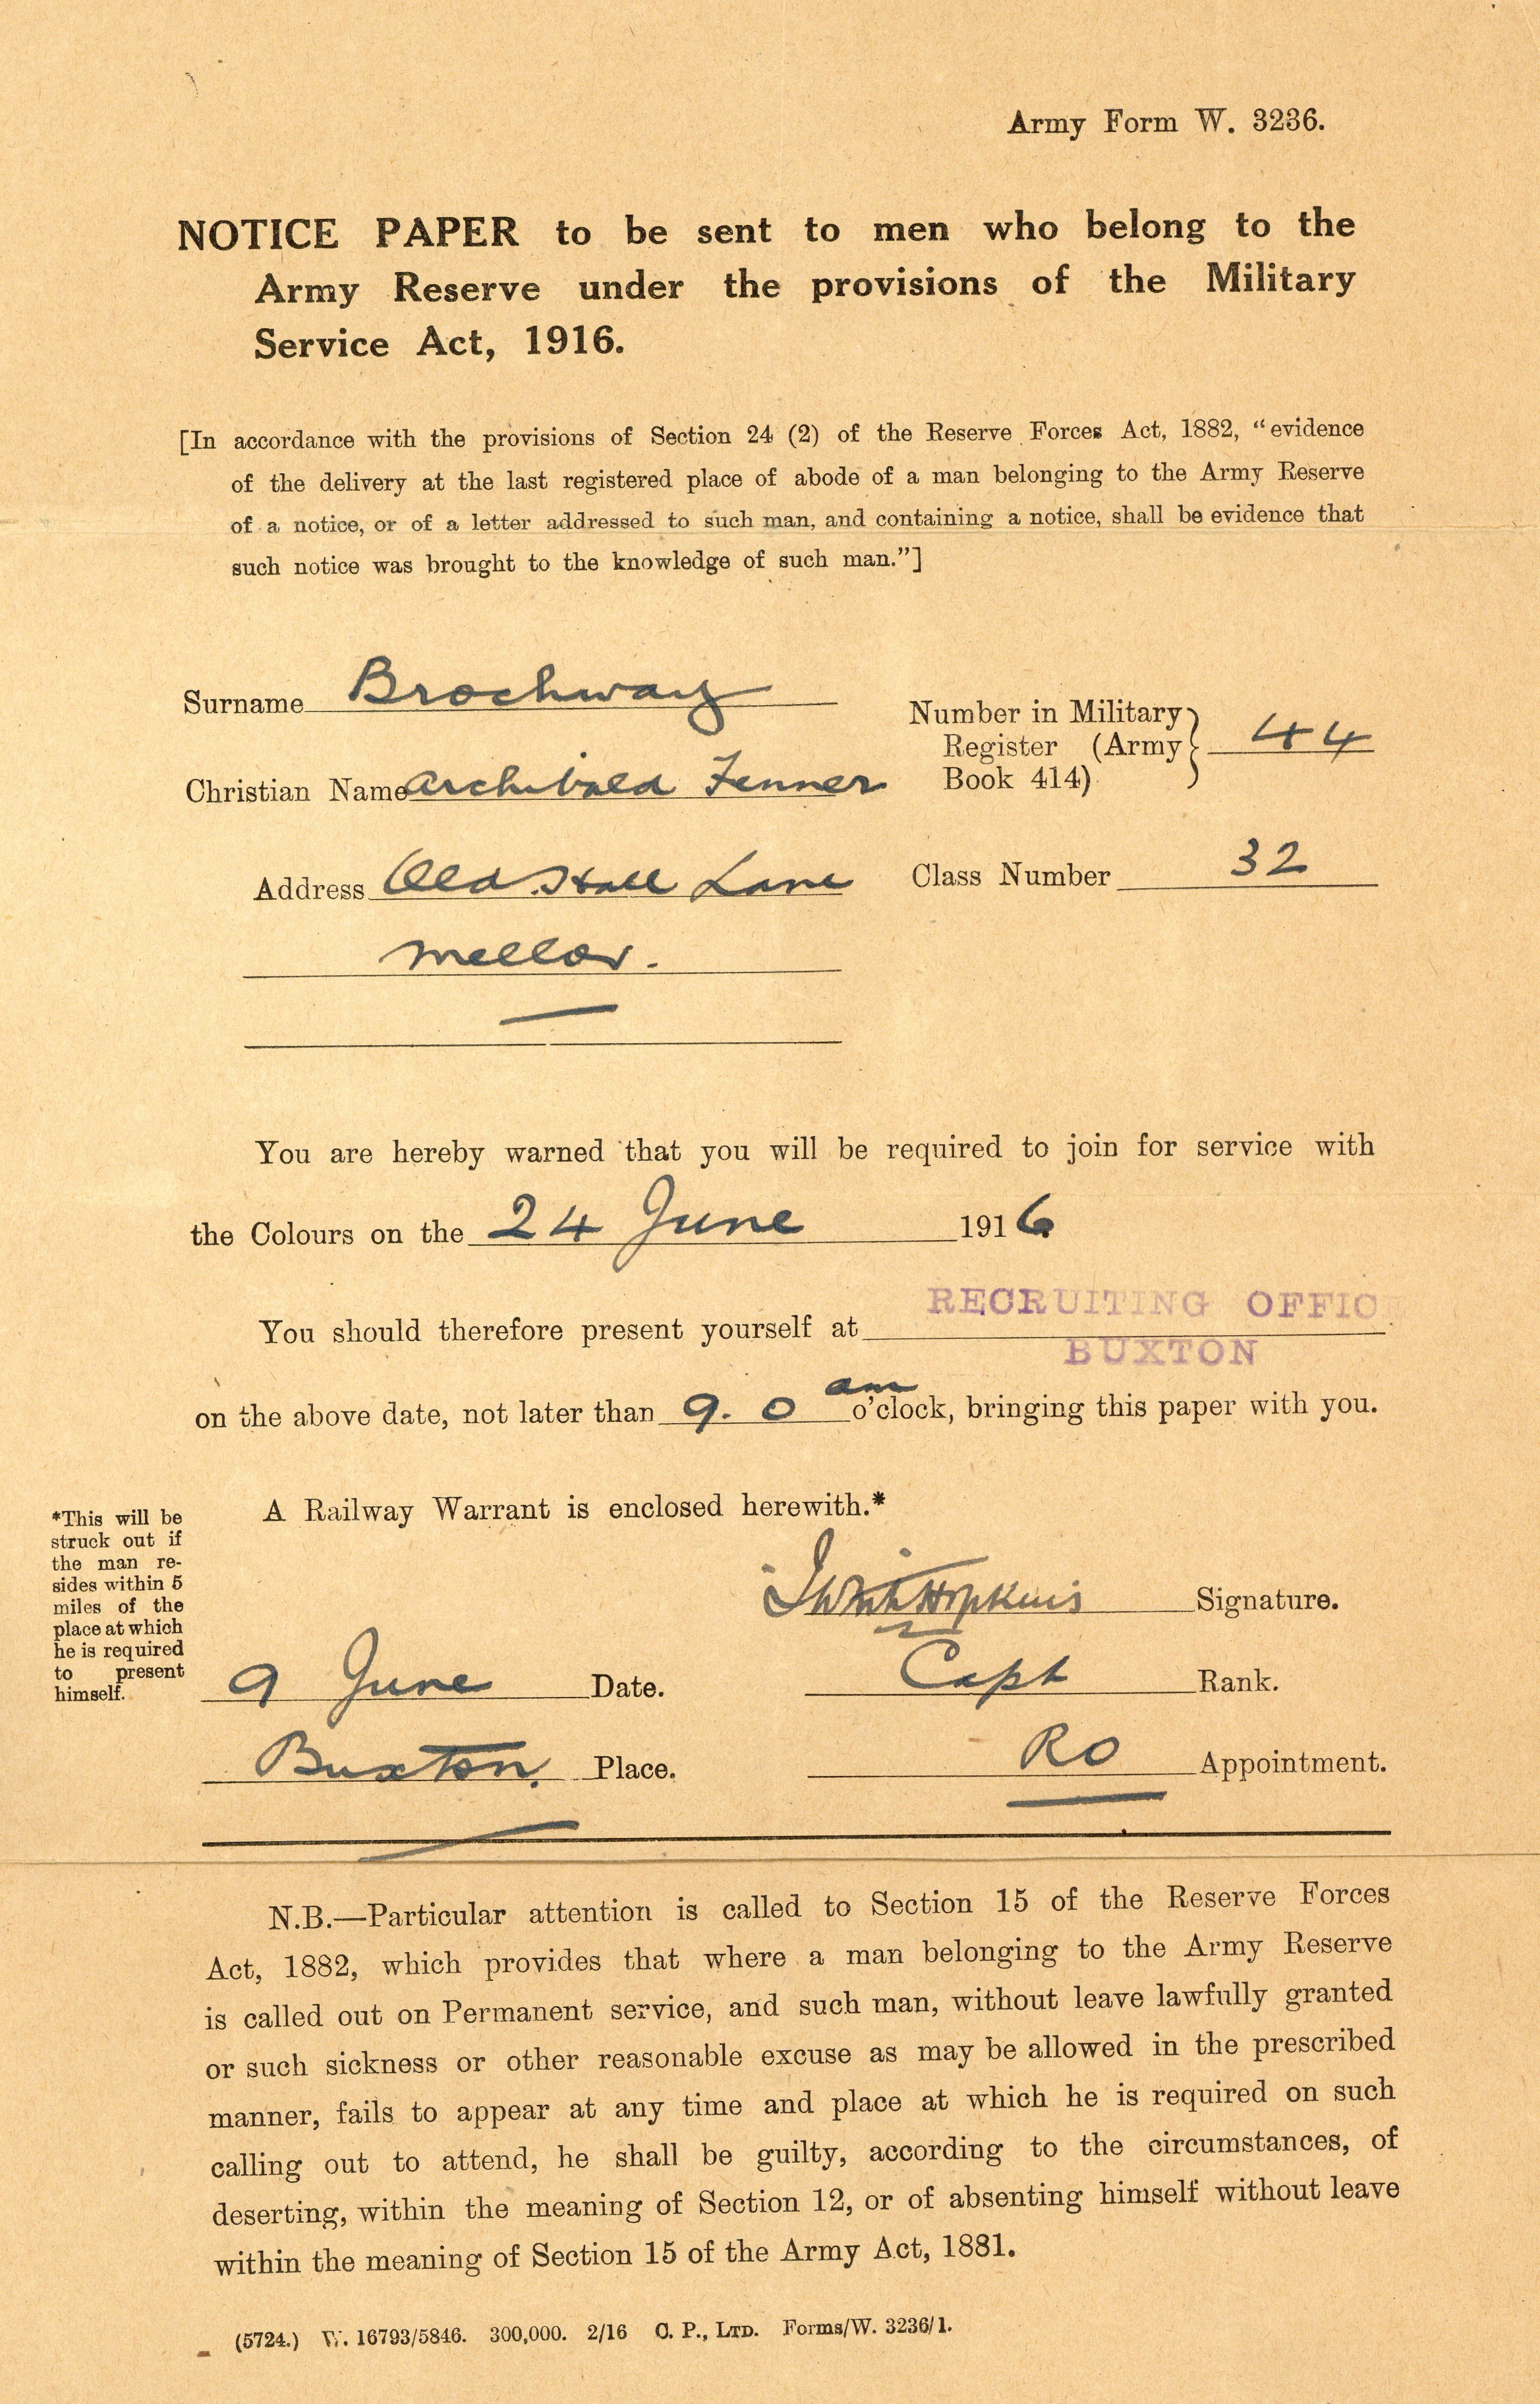 Army Form W. 3236.
NOTICE PAPER to be sent to men who belong to the
Army Reserve under the provisions of the Military
Service Act, 1916.
[In accordance with the provisions of Section 24 (2) of the Reserve Forces Act, 1882, “evidence
of the delivery at the last registered place of abode of a man belonging to the Army Reserve
of a notice, or of a letter addressed to such man, and containing a notice, shall be evidence that
such notice was brought to the knowledge of such man.”]
Surname Brockway
Number in Military
Register (Army 44
Book 414)
Christian Name Archibald Fenner
Address Old Hall Lane
Class Number 32
Mellor.
You are hereby warned that you will be required to join for service with
the Colours on the 24 June 1916
RECRUITING OFFIC
You should therefore present yourself at
BUXTON
on the above date, not later than 9. 0 am o'clock, bringing this paper with you.
A Railway Warrant is enclosed herewith.*
*This will be
struck out if
the man re-
sides within 5
miles of the
place at which
he is required
to present
himself.
Hopkins Signature.
9 June Date.
Capt Rank.
Buxton. Place.
RO Appointment.
N.B.—Particular attention is called to Section 15 of the Reserve Forces
Act, 1882, which provides that where a man belonging to the Army Reserve
is called out on Permanent service, and such man, without leave lawfully granted
or such sickness or other reasonable excuse as may be allowed in the prescribed
manner, fails to appear at any time and place at which he is required on such
calling out to attend, he shall be guilty, according to the circumstances, of
deserting, within the meaning of Section 12, or of absenting himself without leave
within the meaning of Section 15 of the Army Act, 1881.
(5724.) W. 16793/5846. 300,000. 2/16 C. P., LTD. Forms/W. 3236/1.